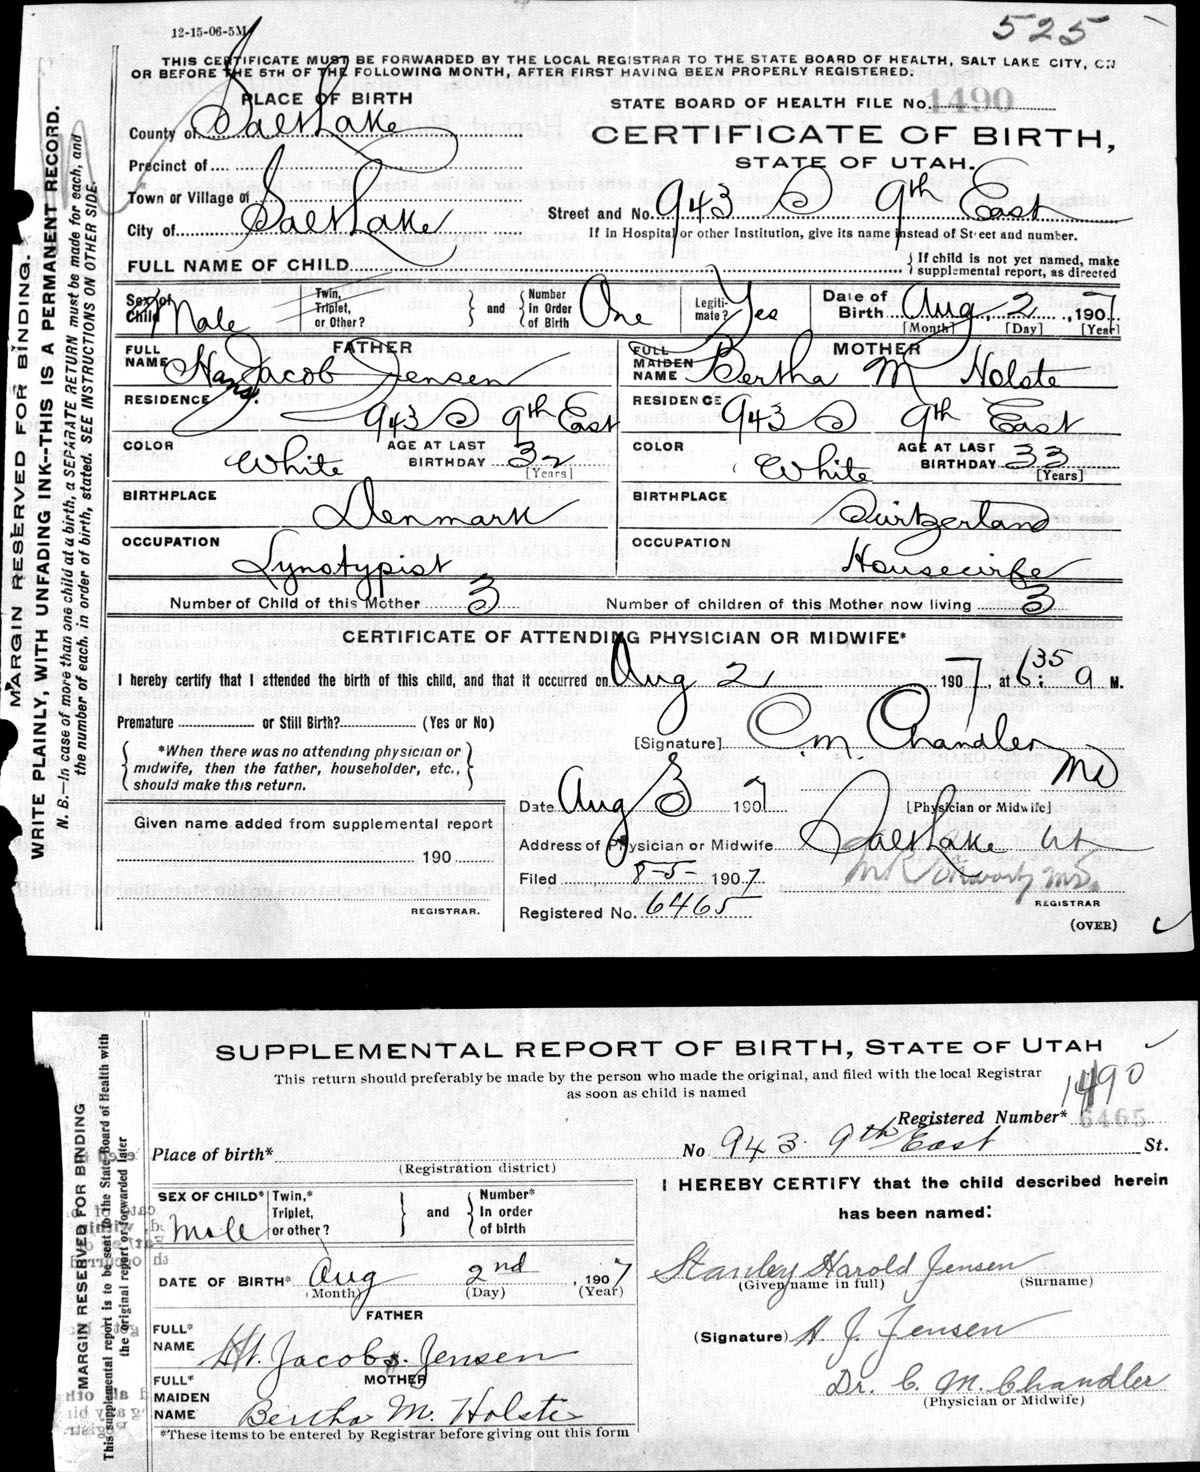 12-15-06-5M
525
THIS CERTIFICATE MUST BE FORWARDED BY THE LOCAL REGISTRAR TO THE STATE BOARD OF HEALTH, SALT LAKE CITY, ON
OR BEFORE THE 5TH OF THE FOLLOWING MONTH, AFTER FIRST HAVING BEEN PROPERLY REGISTERED.
PLACE OF BIRTH
County of Salt Lake
Precinct of
Town or Village of
City of Salt Lake
STATE BOARD OF HEALTH FILE No. 1490
CERTIFICATE OF BIRTH,
STATE OF UTAH.
Street and No. 943 S 9th East
If in Hospital or other Institution, give its name instead of Street and number.
FULL NAME OF CHILD
If child is not yet named, make
supplemental report, as directed
Sex of Child Male
Twin, Triplet, or Other?
and
Number in Order of Birth One
Legitimate? Yes
Date of Birth Aug 2, 1907
[Month] [Day] [Year]
FATHER
FULL NAME Hans Jacob Jensen
RESIDENCE 943 S 9th East
COLOR White
AGE AT LAST BIRTHDAY 32
[Years]
BIRTHPLACE Denmark
OCCUPATION Lynotypist
MOTHER
FULL MAIDEN NAME Bertha M Holste
RESIDENCE 943 S 9th East
COLOR White
AGE AT LAST BIRTHDAY 33
[Years]
BIRTHPLACE Switzerland
OCCUPATION Housewife
Number of Child of this Mother 3
Number of children of this Mother now living 3
CERTIFICATE OF ATTENDING PHYSICIAN OR MIDWIFE*
I hereby certify that I attended the birth of this child, and that it occurred on Aug 2, 1907, at 6:35 a M.
Premature or Still Birth? (Yes or No)
*When there was no attending physician or
midwife, then the father, householder, etc.,
should make this return.
[Signature] C. M. Chandler
MD
Date Aug 3 1907
[Physician or Midwife]
Given name added from supplemental report
190
REGISTRAR.
Address of Physician or Midwife Salt Lake Ut
Filed 8-5- 1907.
Registered No. 6465
REGISTRAR
(OVER)
MARGIN RESERVED FOR BINDING.
WRITE PLAINLY, WITH UNFADING INK--THIS IS A PERMANENT RECORD.
N. B.—In case of more than one child at a birth, a SEPARATE RETURN must be made for each, and
the number of each, in order of birth, stated. SEE INSTRUCTIONS ON OTHER SIDE.
SUPPLEMENTAL REPORT OF BIRTH, STATE OF UTAH
This return should preferably be made by the person who made the original, and filed with the local Registrar
as soon as child is named
1490
Registered Number* 6465
Place of birth*
(Registration district)
No 943 9th East St.
SEX OF CHILD* Male
Twin,* Triplet, or other?
and
Number* In order of birth
DATE OF BIRTH* Aug 2nd, 1907
(Month) (Day) (Year)
FATHER
FULL* NAME H. Jacob Jensen
MOTHER
FULL* MAIDEN NAME Bertha M. Holste
*These items to be entered by Registrar before giving out this form
I HEREBY CERTIFY that the child described herein
has been named:
Stanley Harold Jensen
(Given name in full) (Surname)
(Signature) H J. Jensen
Dr. C. M. Chandler
(Physician or Midwife)
MARGIN RESERVED FOR BINDING
This supplemental report is to be sent to the State Board of Health with
the original report or forwarded later